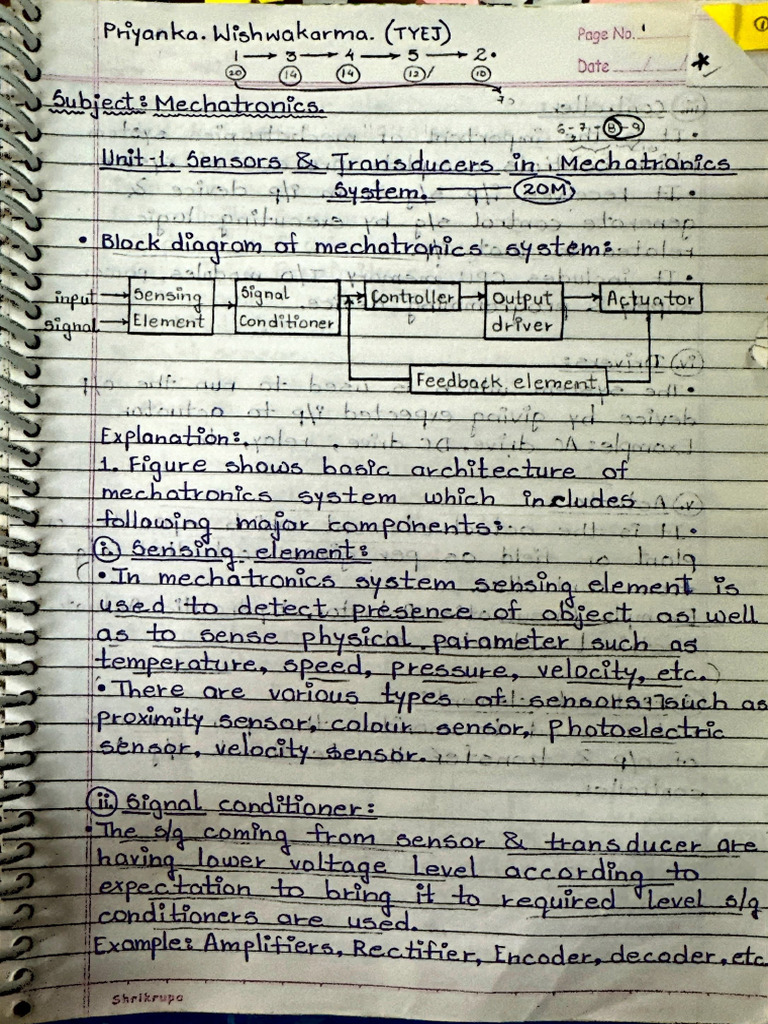 Priyanka. Wishwakarma. (TYEJ)
Page No. 1
1 → 3 → 4 → 5 → 2.
20 14 14 12/ 10
Date
*
70
Subject: Mechatronics.
Unit-1. Sensors & Transducers in Mechatronics
System. — 20M
• Block diagram of mechatronics system:
input
signal
Sensing
Element
Signal
Conditioner
Controller
Output
driver
Actuator
Feedback element
Explanation:
1. Figure shows basic architecture of
mechatronics system which includes
following major components:
i. Sensing element:
• In mechatronics system sensing element is
used to detect presence of object as well
as to sense physical parameter (such as
temperature, speed, pressure, velocity, etc.)
• There are various types of sensors such as
proximity sensor, colour sensor, Photoelectric
sensor, velocity sensor.
ii. Signal conditioner:
• The s/g coming from sensor & transducer are
having lower voltage level according to
expectation to bring it to required level s/g
conditioners are used.
Example: Amplifiers, Rectifier, Encoder, decoder, etc
Shrikrupa